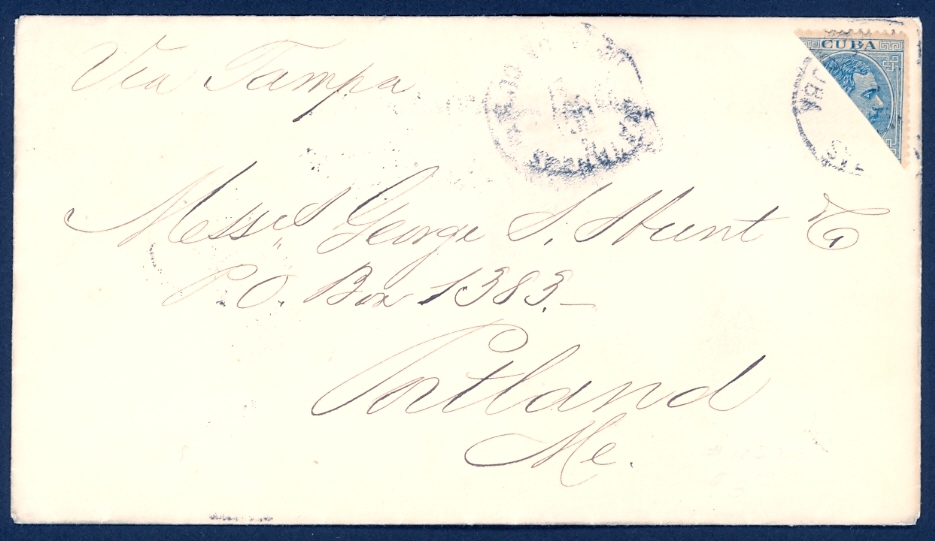 Via Tampa.
CUBA
Messrs George S. Hunt &
P.O. Box 1383-
Portland
Me.